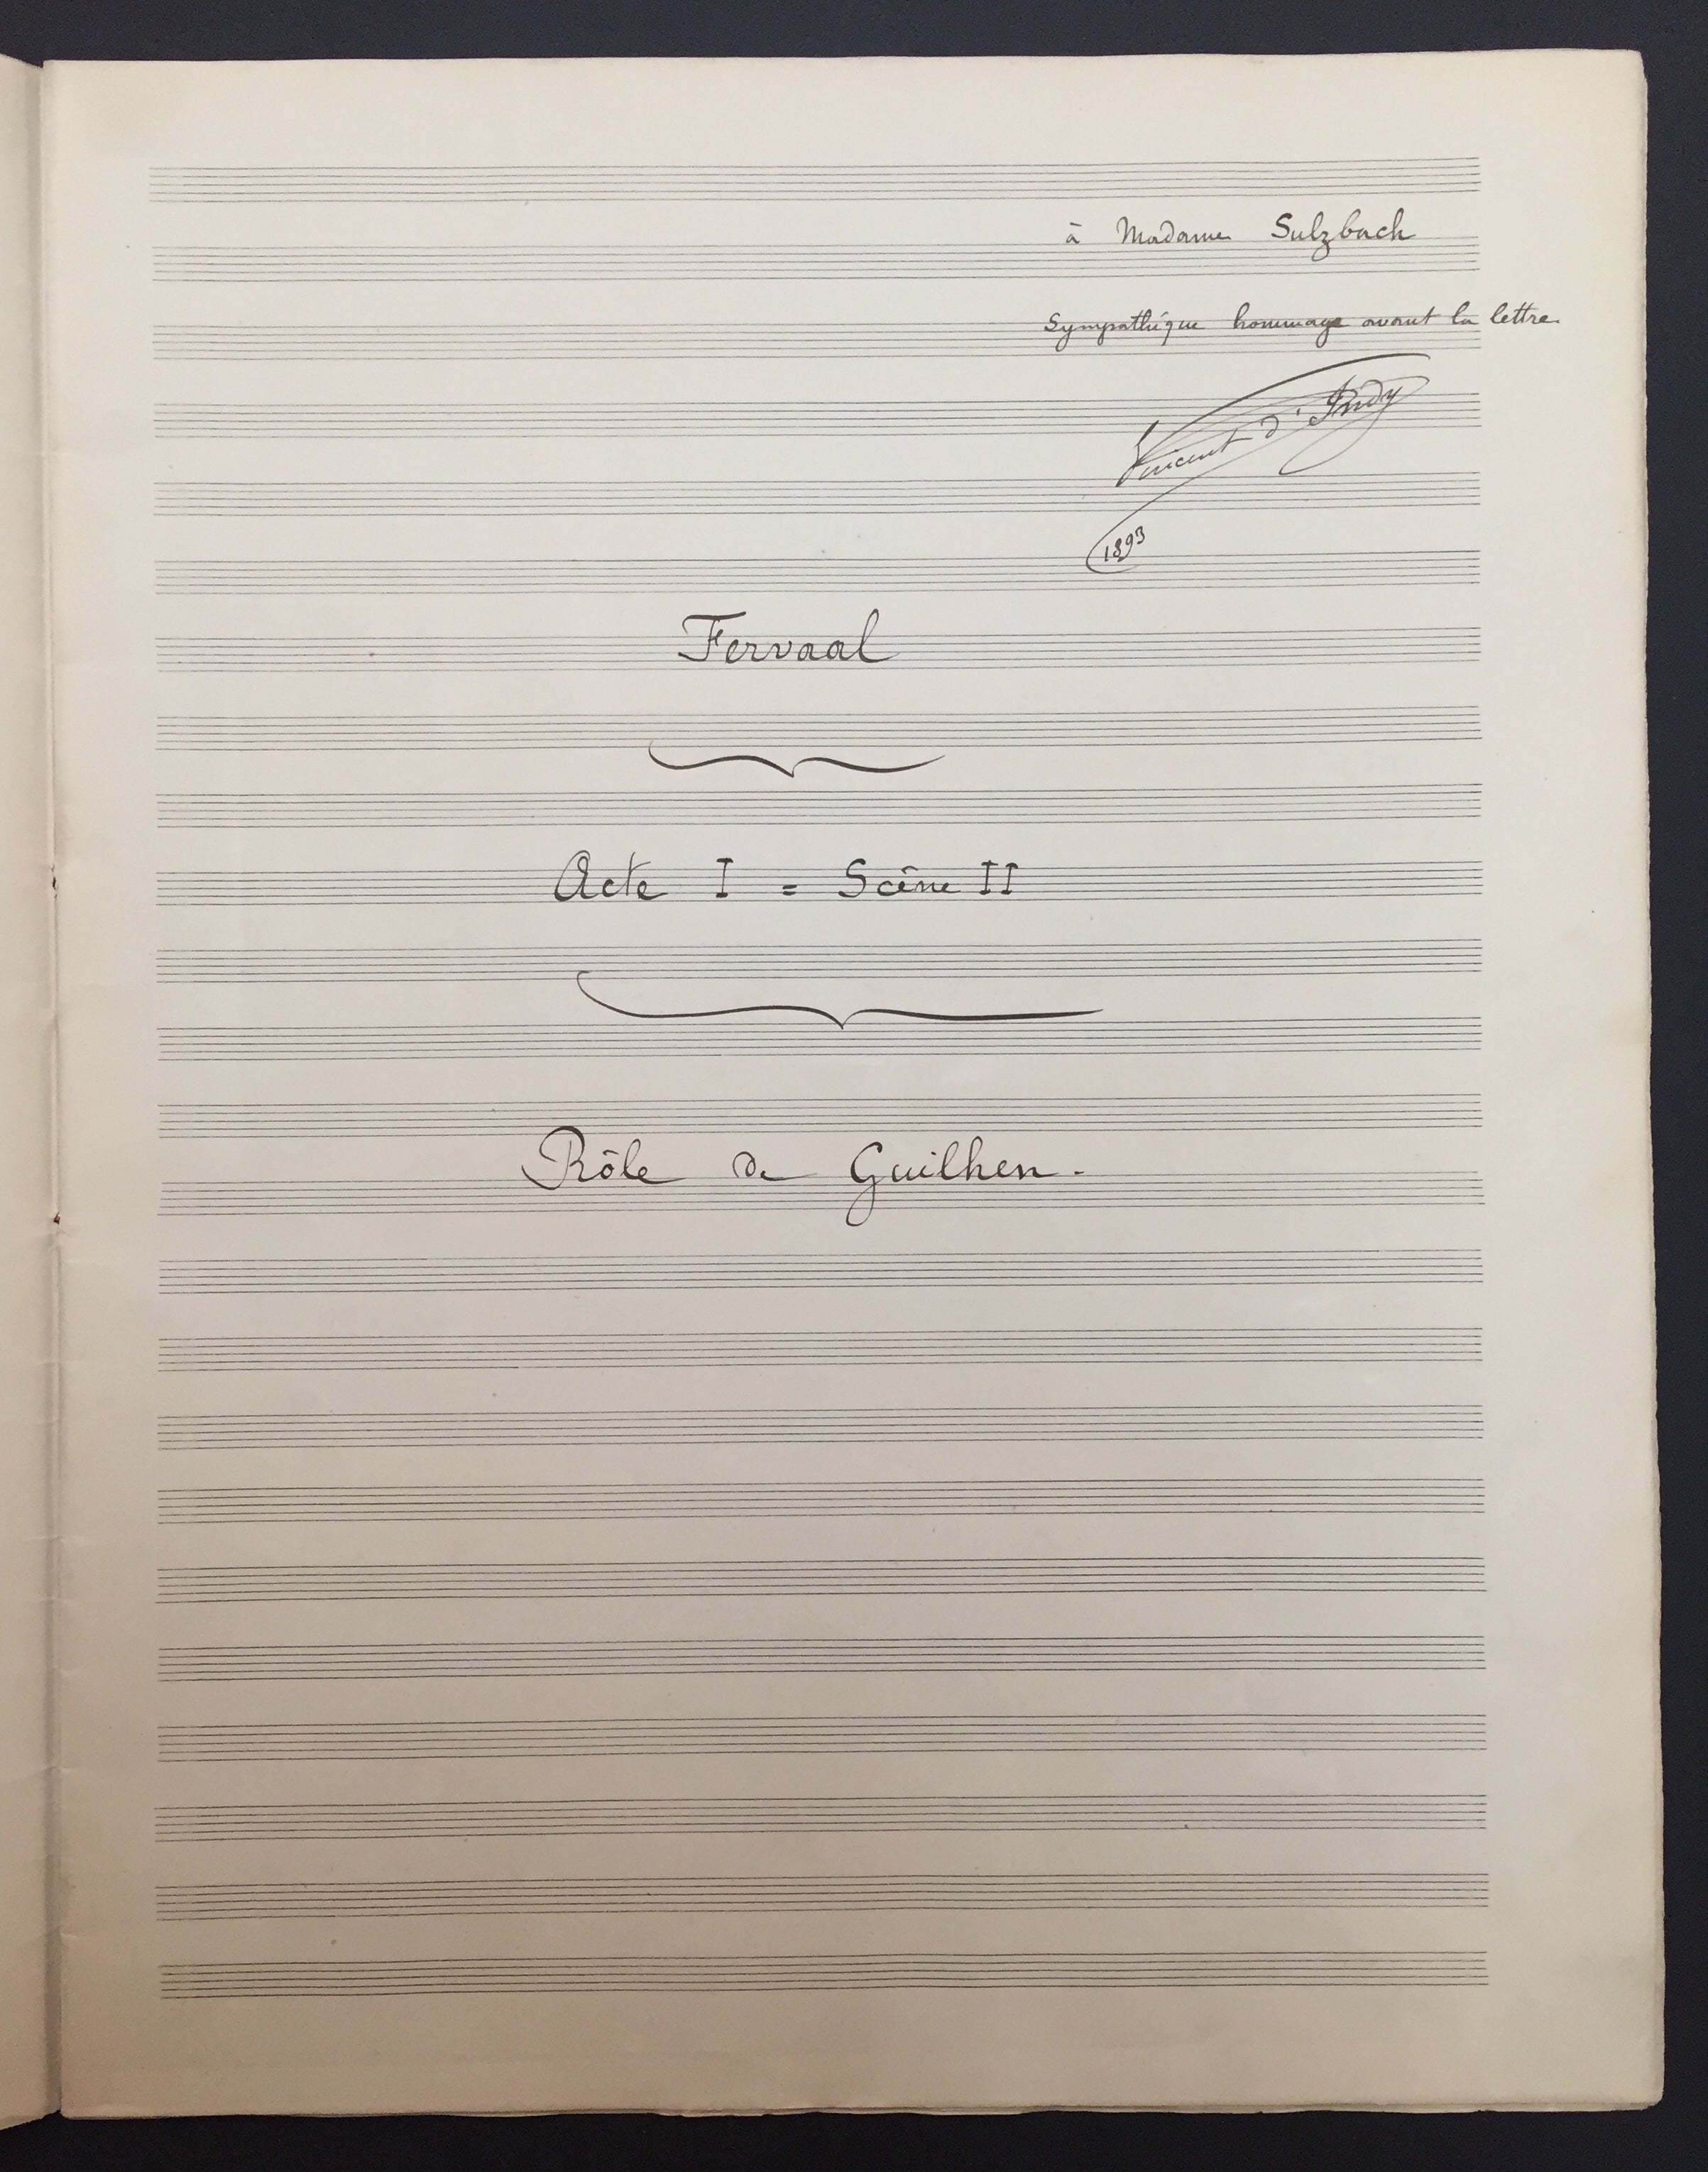 à Madame Sulzbach
Sympathique hommage avant la lettre
Vincent d'Indy
1893
Fervaal
Acte I = Scène II
Rôle de Guilhen.